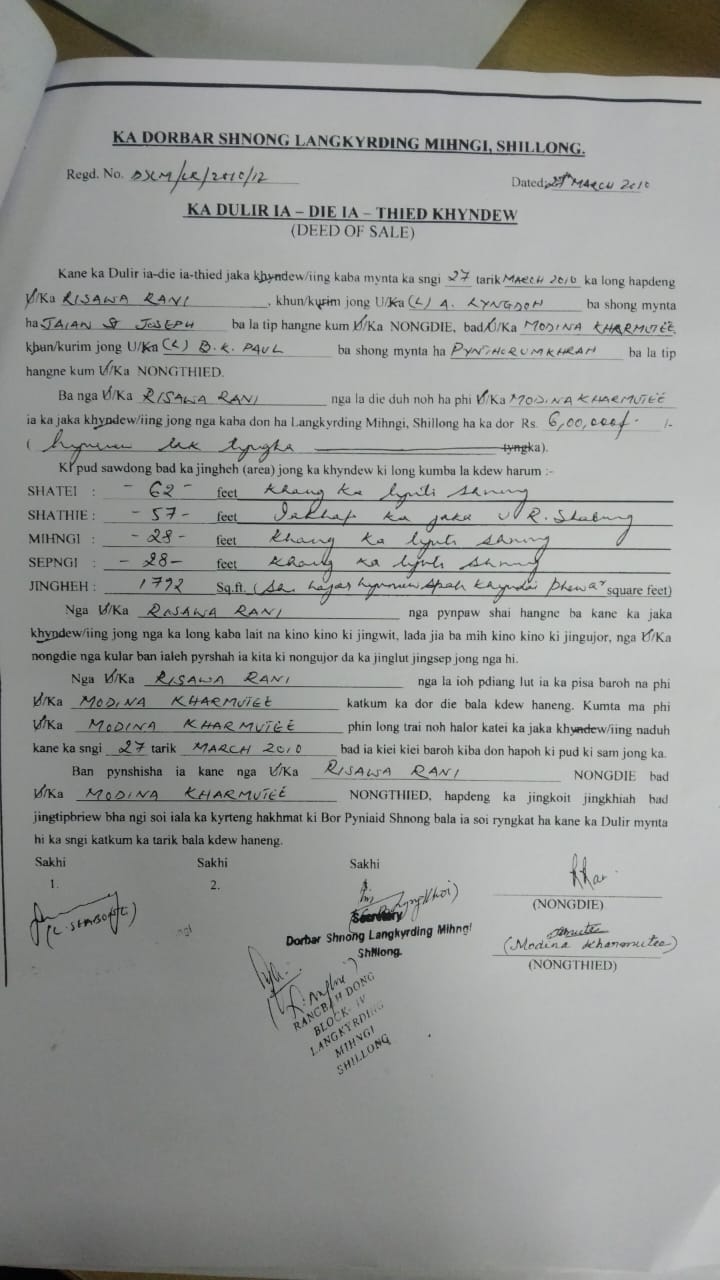 KA DORBAR SHNONG LANGKYRDING MIHNGI, SHILLONG.
Regd. No. DLM/LR/2010/12 Dated: 27th MARCH 2010
KA DULIR IA – DIE IA – THIED KHYNDEW
(DEED OF SALE)
Kane ka Dulir ia-die ia-thied jaka khyndew/iing kaba mynta ka sngi 27 tarik MARCH 2010 ka long hapdeng
U/Ka RISAWA RANI , khun/kurim jong U/Ka (L) A. LYNGDOH ba shong mynta
ha JAIAW St JOSEPH ba la tip hangne kum U/Ka NONGDIE, bad U/Ka MODINA KHARMUTEE,
khun/kurim jong U/Ka (L) B.K. PAUL ba shong mynta ha PYNTHORUMKHRAH ba la tip
hangne kum U/Ka NONGTHIED.
Ba nga U/Ka RISAWA RANI nga la die duh noh ha phi U/Ka MODINA KHARMUTEE
ia ka jaka khyndew/iing jong nga kaba don ha Langkyrding Mihngi, Shillong ha ka dor Rs. 6,00,000/- /-
( hynriew lak tyngka tyngka).
Ki pud sawdong bad ka jingheh (area) jong ka khyndew ki long kumba la kdew harum :-
SHATEI : - 62 - feet Khang ka lynti shnong
SHATHIE : - 57 - feet Iakhap ka jaka U R.
MIHNGI : - 28 - feet Khang ka lynti shnong
SEPNGI : - 28 - feet Khang ka lynti shnong
JINGHEH : 1792 Sq.ft. ( hajar hynniew spah khyndai phew ar square feet)
Nga U/Ka RISAWA RANI nga pynpaw shai hangne ba kane ka jaka
khyndew/iing jong nga ka long kaba lait na kino kino ki jingwit, lada jia ba mih kino kino ki jingujor, nga U/Ka
nongdie nga kular ban ialeh pyrshah ia kita ki nongujor da ka jinglut jingsep jong nga hi.
Nga U/Ka RISAWA RANI nga la ioh pdiang lut ia ka pisa baroh na phi
U/Ka MODINA KHARMUTEE katkum ka dor die bala kdew haneng. Kumta ma phi
U/Ka MODINA KHARMUTEE phin long trai noh halor katei ka jaka khyndew/iing naduh
kane ka sngi 27 tarik MARCH 2010 bad ia kiei kiei baroh kiba don hapoh ki pud ki sam jong ka.
Ban pynshisha ia kane nga U/Ka RISAWA RANI NONGDIE bad
U/Ka MODINA KHARMUTEE NONGTHIED, hapdeng ka jingkoit jingkhiah bad
jingtipbriew bha ngi soi iala ka kyrteng hakhmat ki Bor Pyniaid Shnong bala ia soi ryngkat ha kane ka Dulir mynta
hi ka sngi katkum ka tarik bala kdew haneng.
Sakhi Sakhi Sakhi
1. 2.
(NONGDIE)
Secretary
Dorbar Shnong Langkyrding Mihngi
Shillong.
(Modina Kharmutee)
(NONGTHIED)
RANGBAH DONG
BLOCK- IV
LANGKYRDING
MIHNGI
SHILLONG